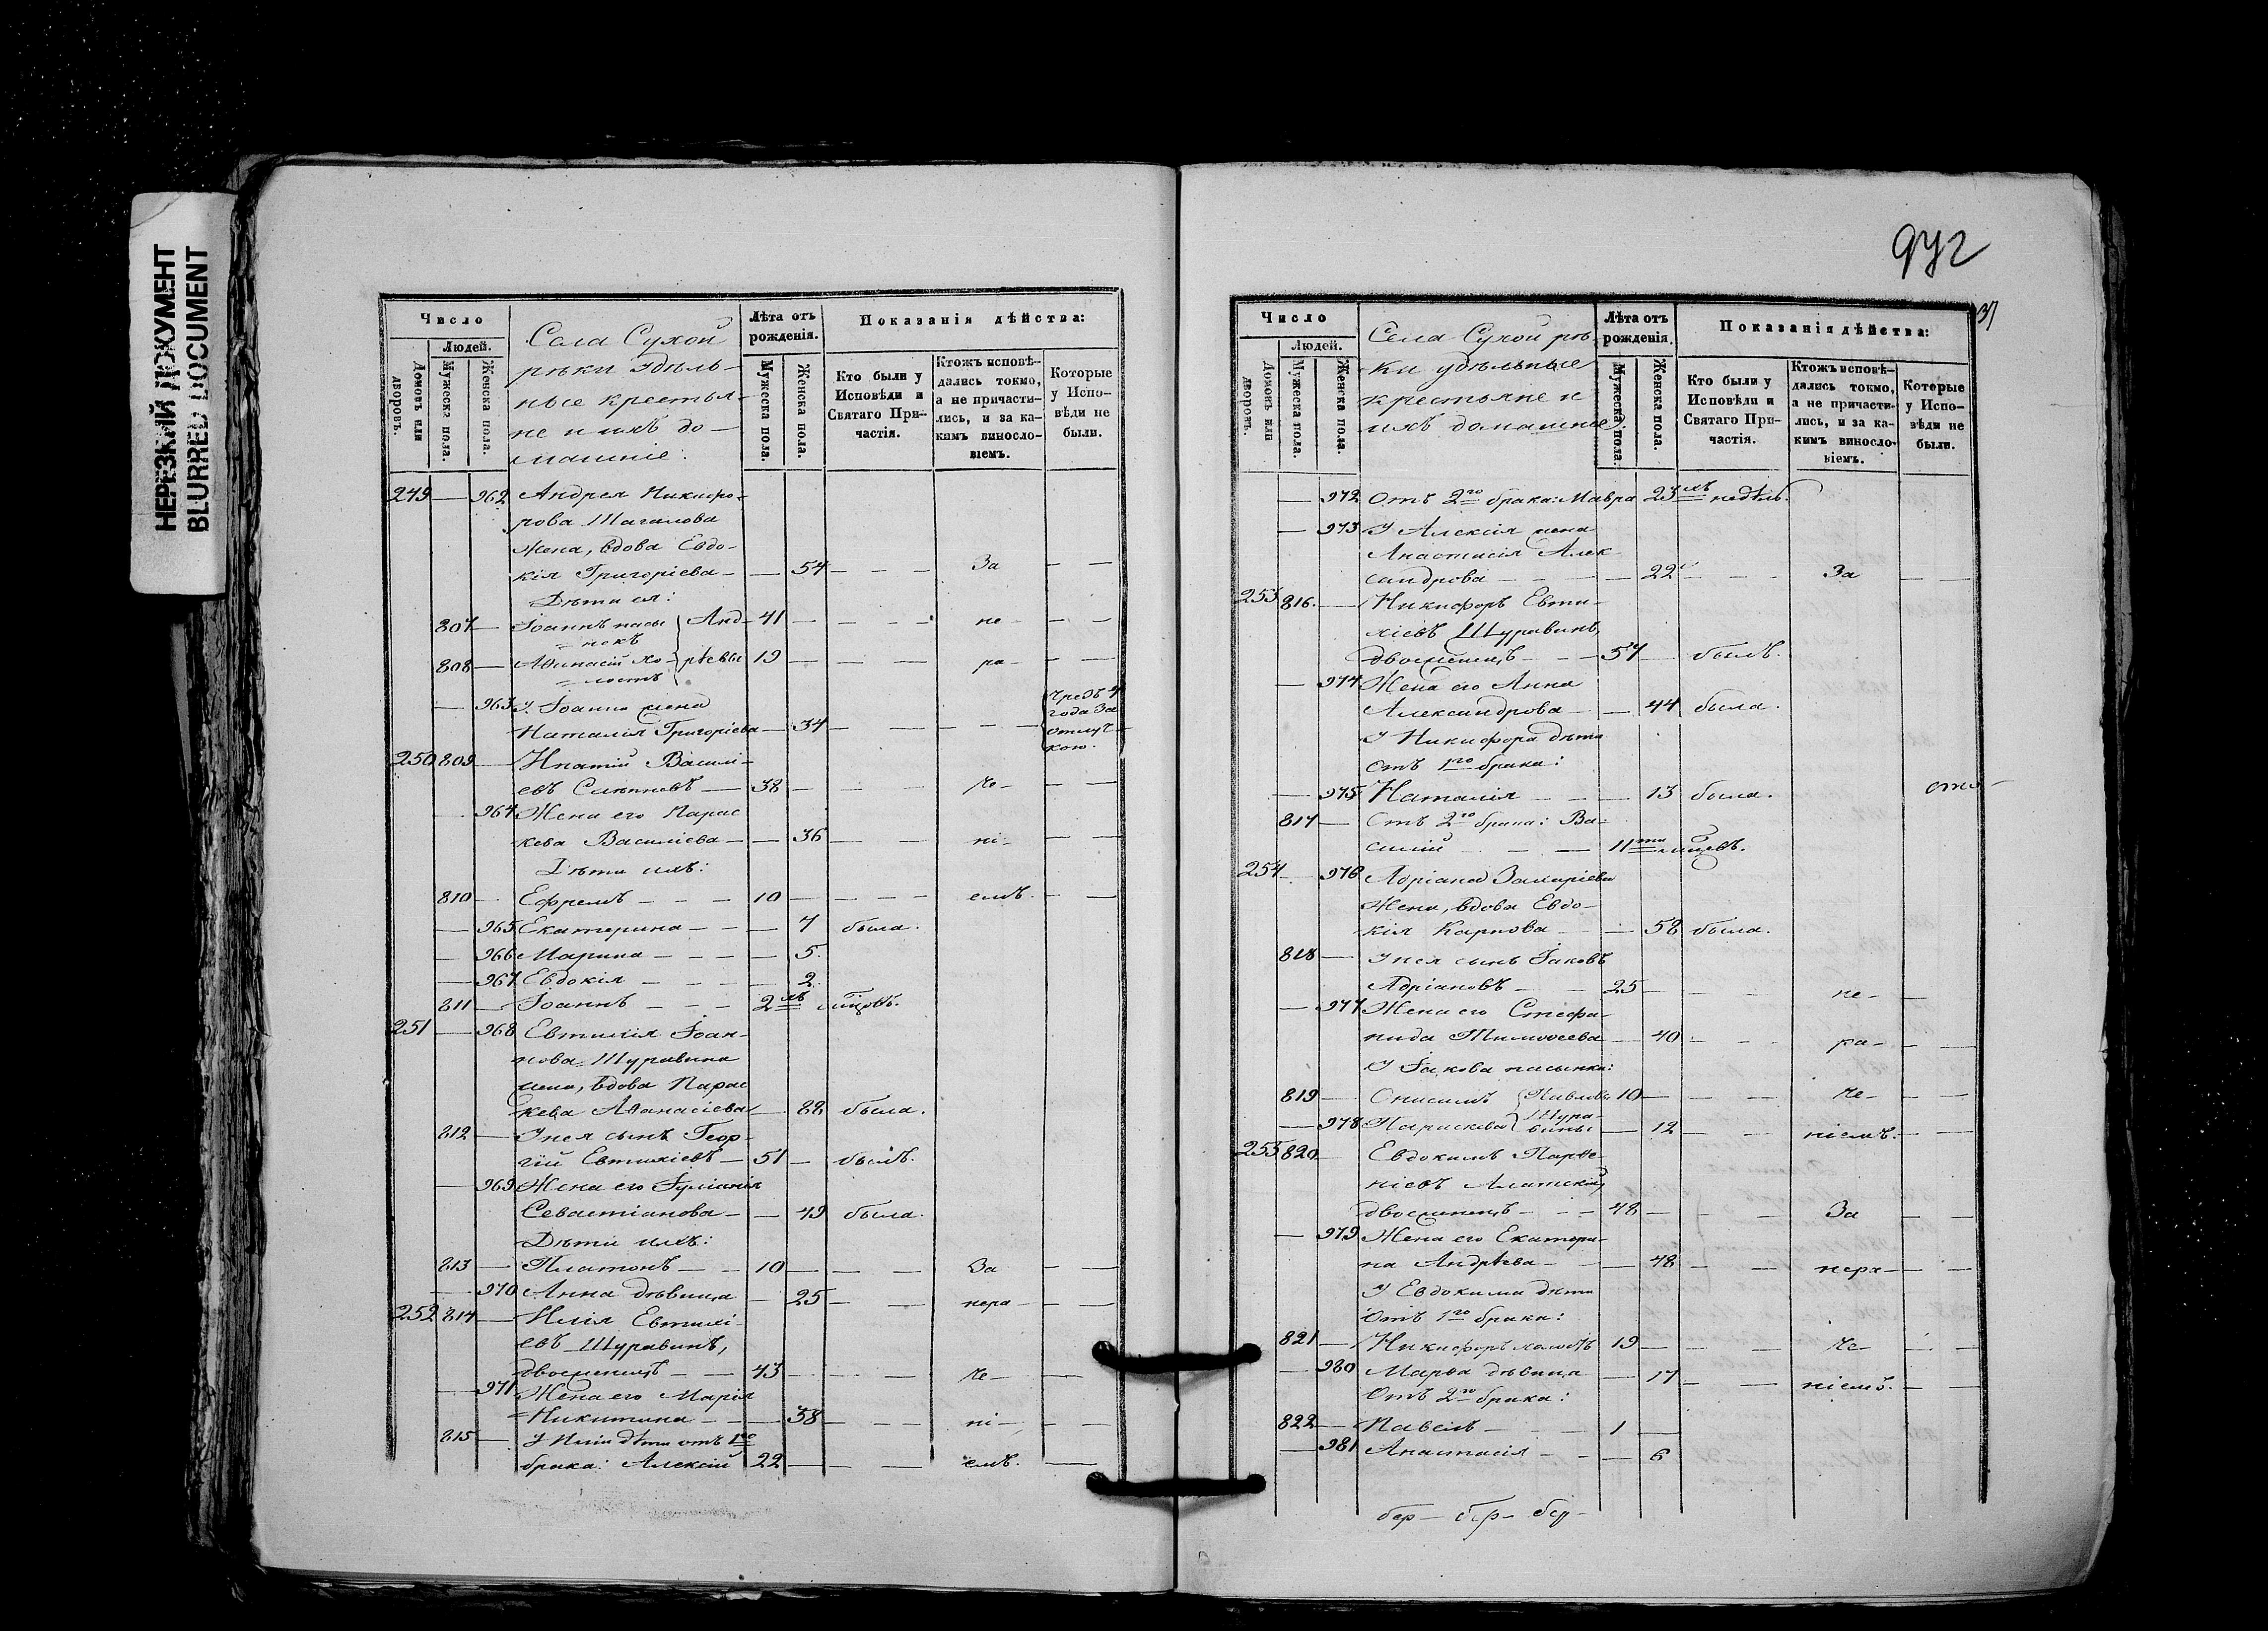 НЕРЕЗКИЙ ДОКУМЕНТ
BLURRED DOCUMENT
Число
Людей.
Домовъ или дворовъ.
Мужеска пола.
Женска пола.
Села Сухой
рѣки удѣль-
ные крестья-
не и ихъ до-
машніе:
Лѣта отъ рожденія.
Мужеска пола.
Женска пола.
Показанія дѣйства:
Кто были у Исповѣди и Святаго При-частія.
Ктожъ исповѣ-дались токмо, а не причасти-лись, и за ка-кимъ винosло-віемъ.
Которые у Испо-вѣди не были.
249 — 962 Андрея Никифо-
рова Шагалова
жена, вдова Евдо-
кія Григоріева — — 54 — — — За — —
Дѣти ея:
807 — Іоаннъ пасы-нокъ } Анд- 41 — — — не — — —
808 — Аѳанасій хо-лостъ } рѣевы 19 — — — ра — — —
— 963 У Іоанна жена
Наталія Григоріева — 34 — — — — Чрезъ 4 года За отлуч-кою.
250 809 — Ипатій Васильі-
евъ Слѣпневъ — 38 — — — че — — —
964 Жена его Парас-
кева Василіева — — 36 — — ні — — —
Дѣти ихъ:
810 — Ефремъ — — — 10 — — — — емъ. — —
— 965 Екатерина — — — 7 была.
— 966 Марина — — — — 5.
— 967 Евдокія — — — — 2.
811 — Іоаннъ — — — 2хъ мцовъ.
251 — 968 Евтихія Іоан-
нова Шуравина
жена, вдова Парас-
кева Аѳанасіева — 88 была.
812 — У нея сынъ Геор-
гій Евтихіевъ — 51 — былъ.
— 969 Жена его Іуліанія
Севастіанова — — 49 была.
Дѣти ихъ:
813 — Платонъ — — 10 — — — За — —
— 970 Анна дѣвица — 25 — — нера — — —
252 814 — Илія Евтихі-
евъ Шуравинъ,
двоеженецъ — — 43 — — — че — —
— 971 Жена его Марія
Никитина — — — 38 — — — ні — — —
815 — У Иліи дѣти отъ 1го
брака: Алексій 22 — — — емъ. —
972
37
Число
Людей.
Домовъ или дворовъ.
Мужеска пола.
Женска пола.
Села Сухой рѣ-
ки удѣльные
крестьяне и
ихъ домашніе.
Лѣта отъ рожденія.
Мужеска пола.
Женска пола.
Показанія дѣйства:
Кто были у Исповѣди и Святаго При-частія.
Ктожъ исповѣ-дались токмо, а не причасти-лись, и за ка-кимъ винocло-віемъ.
Которые у Испо-вѣди не были.
— 972 Отъ 2го брака: Мавра 23хъ недѣль.
— 973 У Алексія жена
Анастасія Алек-
сандрова — — — — 22 — — За — —
253 816. — Никифоръ Евти-
хіевъ Шуравинъ,
двоеженецъ — — 57 — былъ.
— 974 Жена его Анна
Александрова — — 44 была.
У Никифора дѣти
Отъ 1го брака:
— 975 Наталія — — — 13 была.
817 — Отъ 2го брака: Ва-
силій — — — 11ти мцевъ.
254 — 976 Адріана Захаріева
жена, вдова Евдо-
кія Карпова — — 58 была.
818 — У нея сынъ Іаковъ
Адріановъ — — 25 — — — не — —
— 977 Жена его Стефа-
нида Тимоѳеева — 40 — — ра — — —
У Іакова пасынки:
819 — Онисимъ } Павловы 10 — — — че — — —
— 978 Параскева } Шура-вины — 12 — — ніемъ. — —
255 820 — Евдокимъ Парѳе-
ніевъ Алатскій,
двоеженецъ — — 48 — — — За — —
— 979 Жена его Екатери-
на Андрѣева — — 48 — — нера — — —
У Евдокима дѣти
Отъ 1го брака:
821 — Никифоръ холостъ 19 — — — че — — —
— 980 Марѳа дѣвица — 17 — — ніемъ. — —
Отъ 2го брака:
822 — Павелъ — — — 1 —
— 981 Анастасія — — — 6